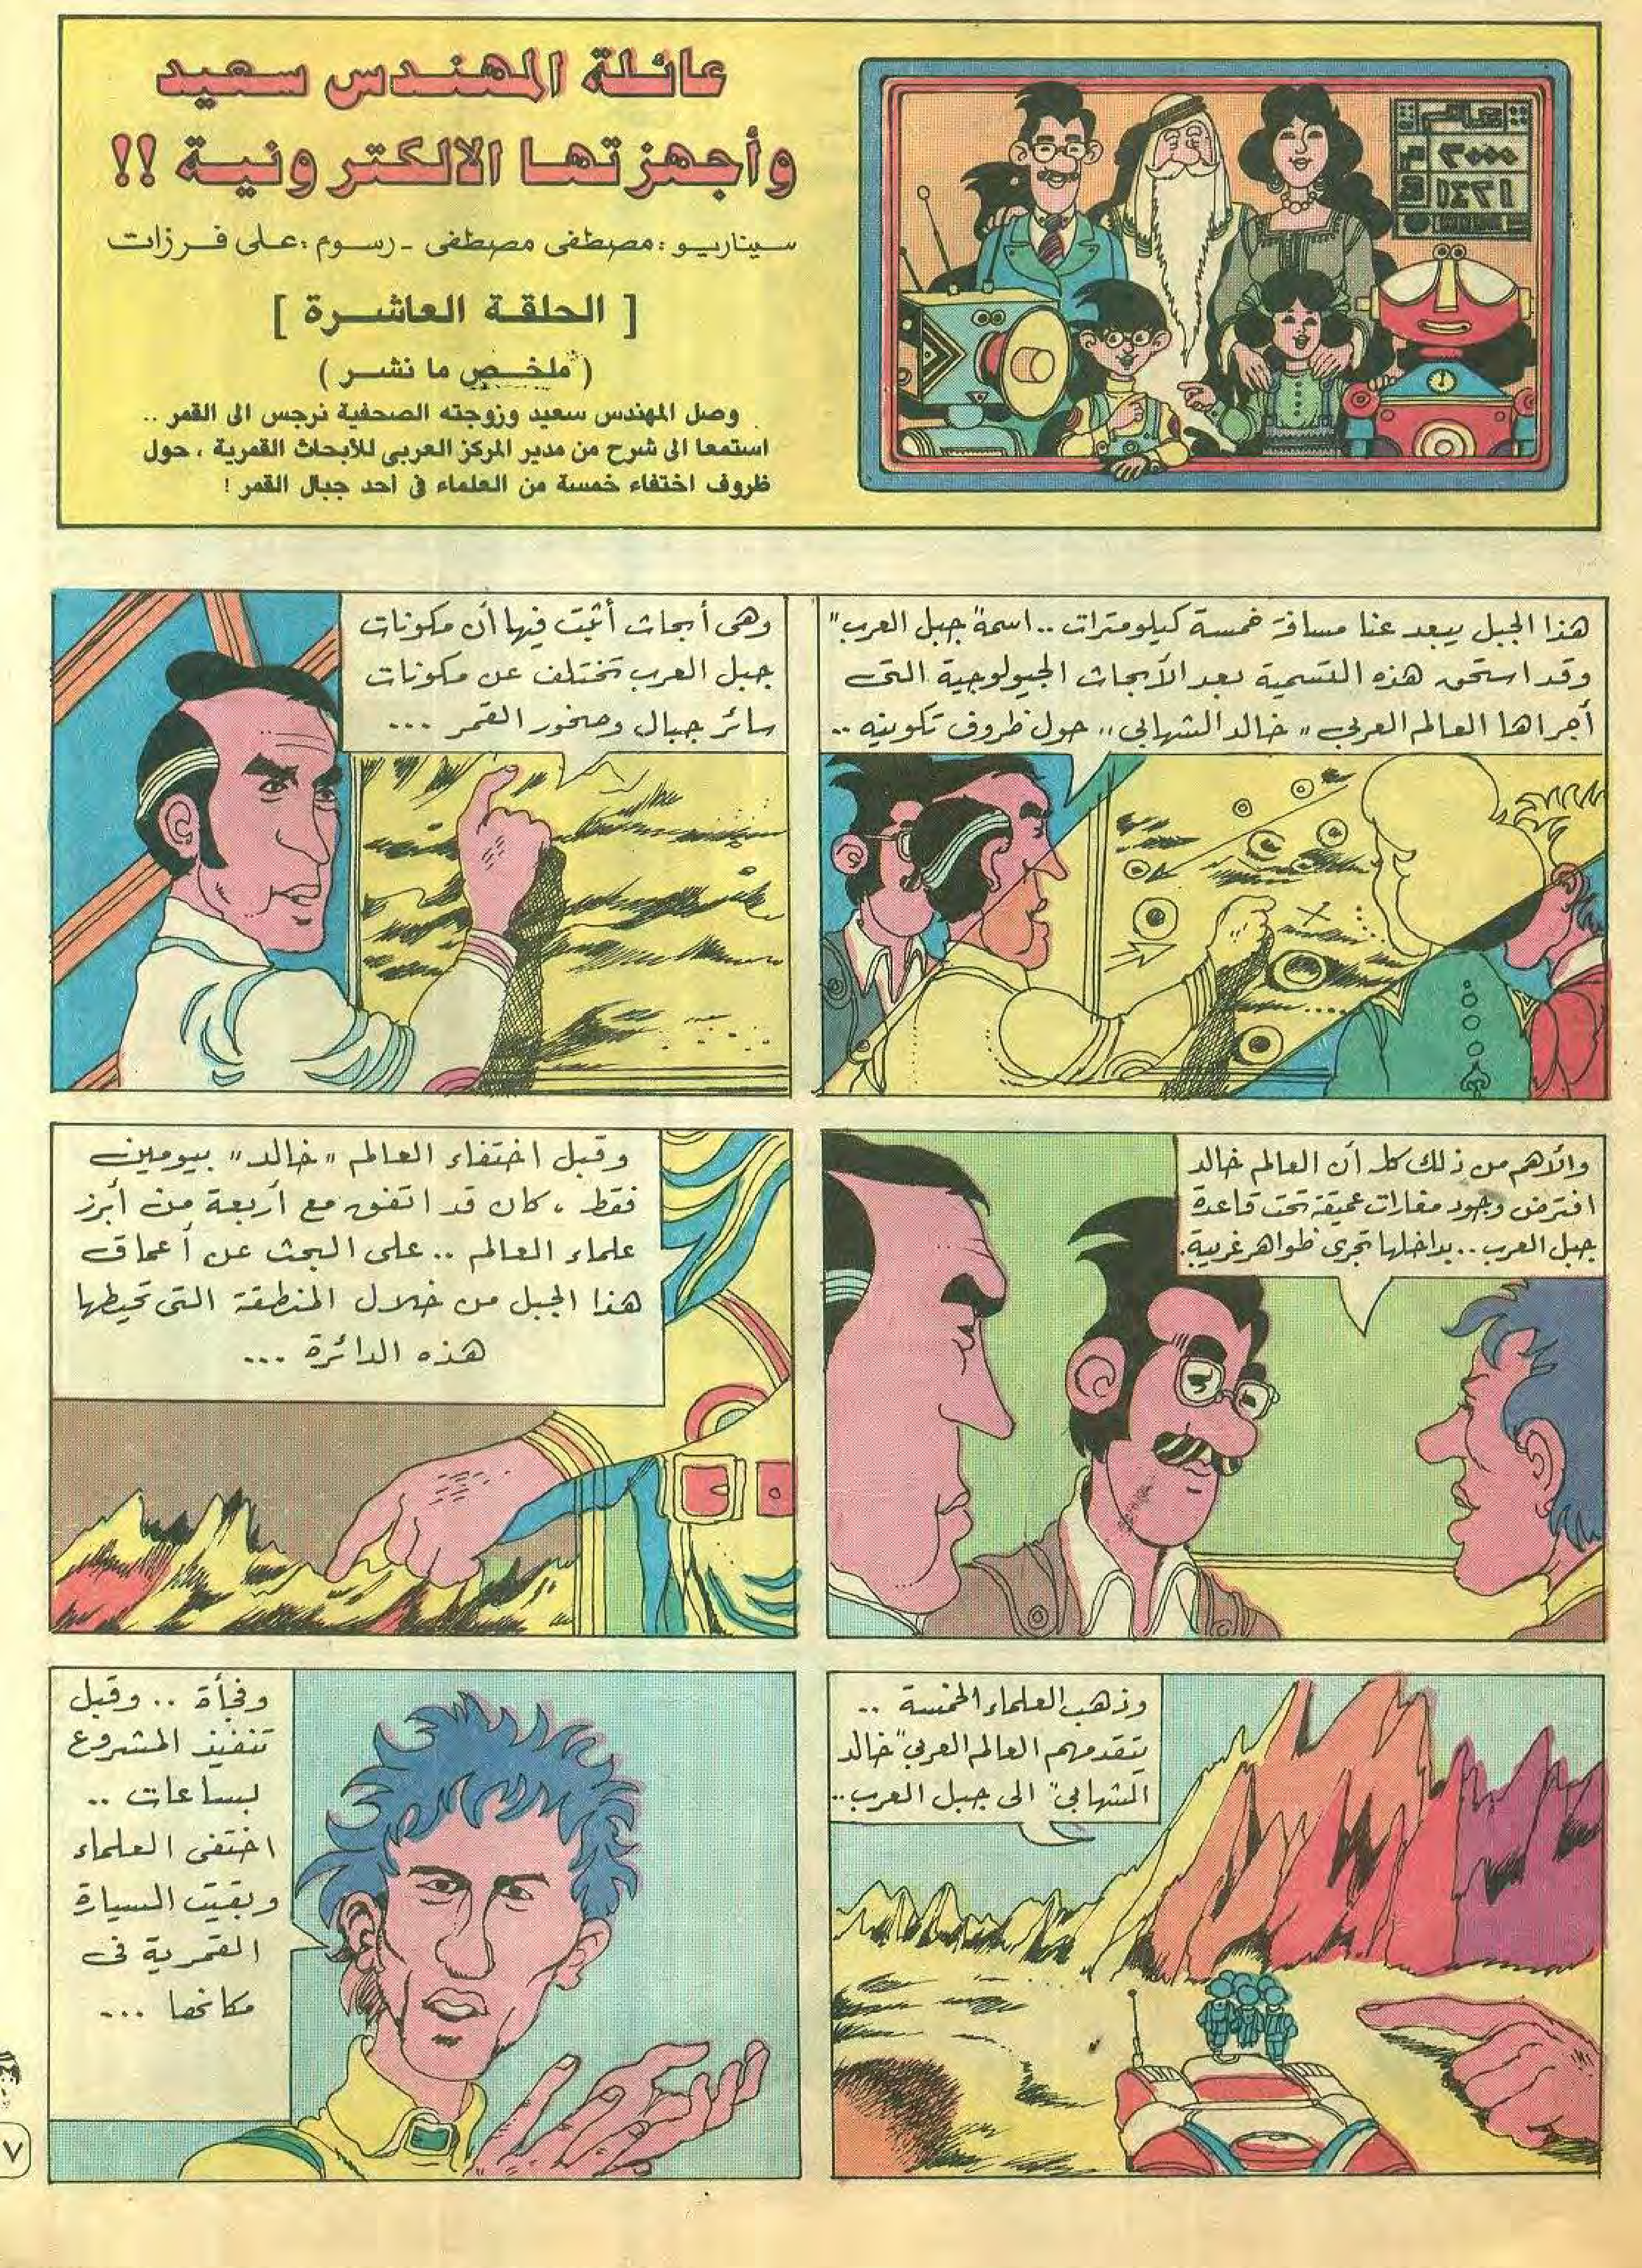 عائلة المهندس سعيد
وأجهزتها الالكترونية !!
سيناريو : مصطفى مصطفى - رسوم : على فرزات
[ الحلقة العاشرة ]
( ملخص ما نشر )
وصل المهندس سعيد وزوجته الصحفية نرجس الى القمر ..
استمعا الى شرح من مدير المركز العربى للأبحاث القمرية ، حول
ظروف اختفاء خمسة من العلماء فى احد جبال القمر !
عالم
٢٠٠٠ م
١٤٢١ ه
هذا الجبل يبعد عنا مسافة خمسة كيلومترات .. اسمه "جبل العرب"
وقد استحق هذه التسمية بعد الأبحاث الجيولوجية التى
أجراها العالم العربي " خالد الشهابي " حول ظروف تكوينه ..
وهى أبحاث أثبت فيها أن مكونات
جبل العرب تختلف عن مكونات
سائر جبال وصخور القمر ...
والأهم من ذلك كله أن العالم خالد
افترض وجود مغارات عميقة تحت قاعدة
جبل العرب .. بداخلها تجرى ظواهر غريبة .
وقبل اختفاء العالم " خالد " بيومين
فقط ، كان قد اتفق مع أربعة من أبرز
علماء العالم .. على البحث عن أعماق
هذا الجبل من خلال المنطقة التى تحيطها
هذه الدائرة ...
وذهب العلماء الخمسة ..
يتقدمهم العالم العربي "خالد
الشهابي" الى جبل العرب ..
وفجأة .. وقبل
تنفيذ المشروع
بساعات ..
اختفى العلماء
وبقيت السيارة
القمرية فى
مكانها ...
٧